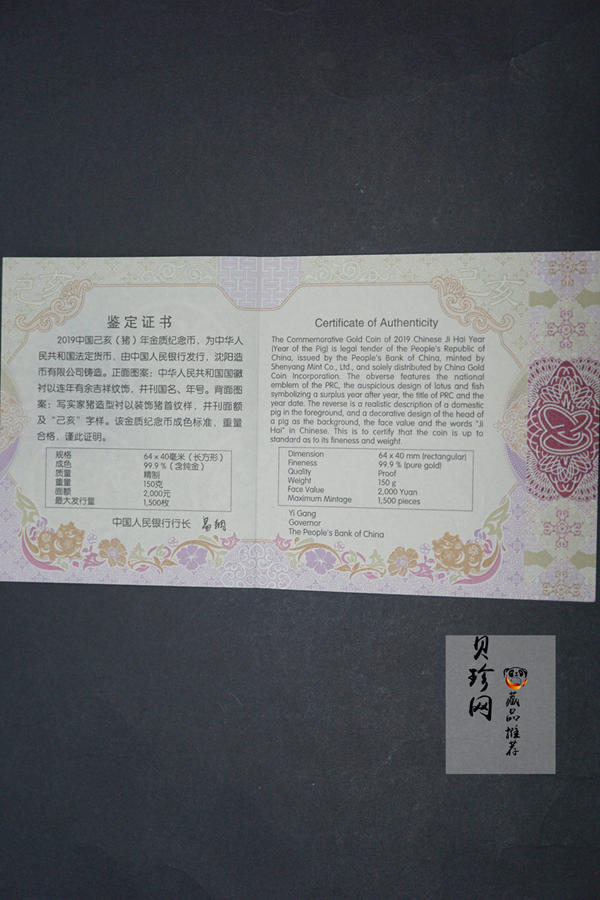 鉴定证书
2019中国己亥（猪）年金质纪念币，为中华人
民共和国法定货币，由中国人民银行发行，沈阳造
币有限公司铸造。正面图案：中华人民共和国国徽
衬以连年有余吉祥纹饰，并刊国名、年号。背面图
案：写实家猪造型衬以装饰猪首纹样，并刊面额
及“己亥”字样。该金质纪念币成色标准，重量
合格，谨此证明。
规格 64×40毫米（长方形）
成色 99.9％（含纯金）
质量 精制
重量 150克
面额 2,000元
最大发行量 1,500枚
中国人民银行行长 易纲
Certificate of Authenticity
The Commemorative Gold Coin of 2019 Chinese Ji Hai Year
(Year of the Pig) is legal tender of the People's Republic of
China, issued by the People's Bank of China, minted by
Shenyang Mint Co., Ltd., and solely distributed by China Gold
Coin Incorporation. The obverse features the national
emblem of the PRC, the auspicious design of lotus and fish
symbolizing a surplus year after year, the title of PRC and the
year date. The reverse is a realistic description of a domestic
pig in the foreground, and a decorative design of the head of
a pig as the background, the face value and the words "Ji
Hai" in Chinese. This is to certify that the coin is up to
standard as to its fineness and weight.
Dimension 64 x 40 mm (rectangular)
Fineness 99.9 % (pure gold)
Quality Proof
Weight 150 g
Face Value 2,000 Yuan
Maximum Mintage 1,500 pieces
Yi Gang
Governor
The People's Bank of China
己亥
己亥
贝珍网
藏品推荐